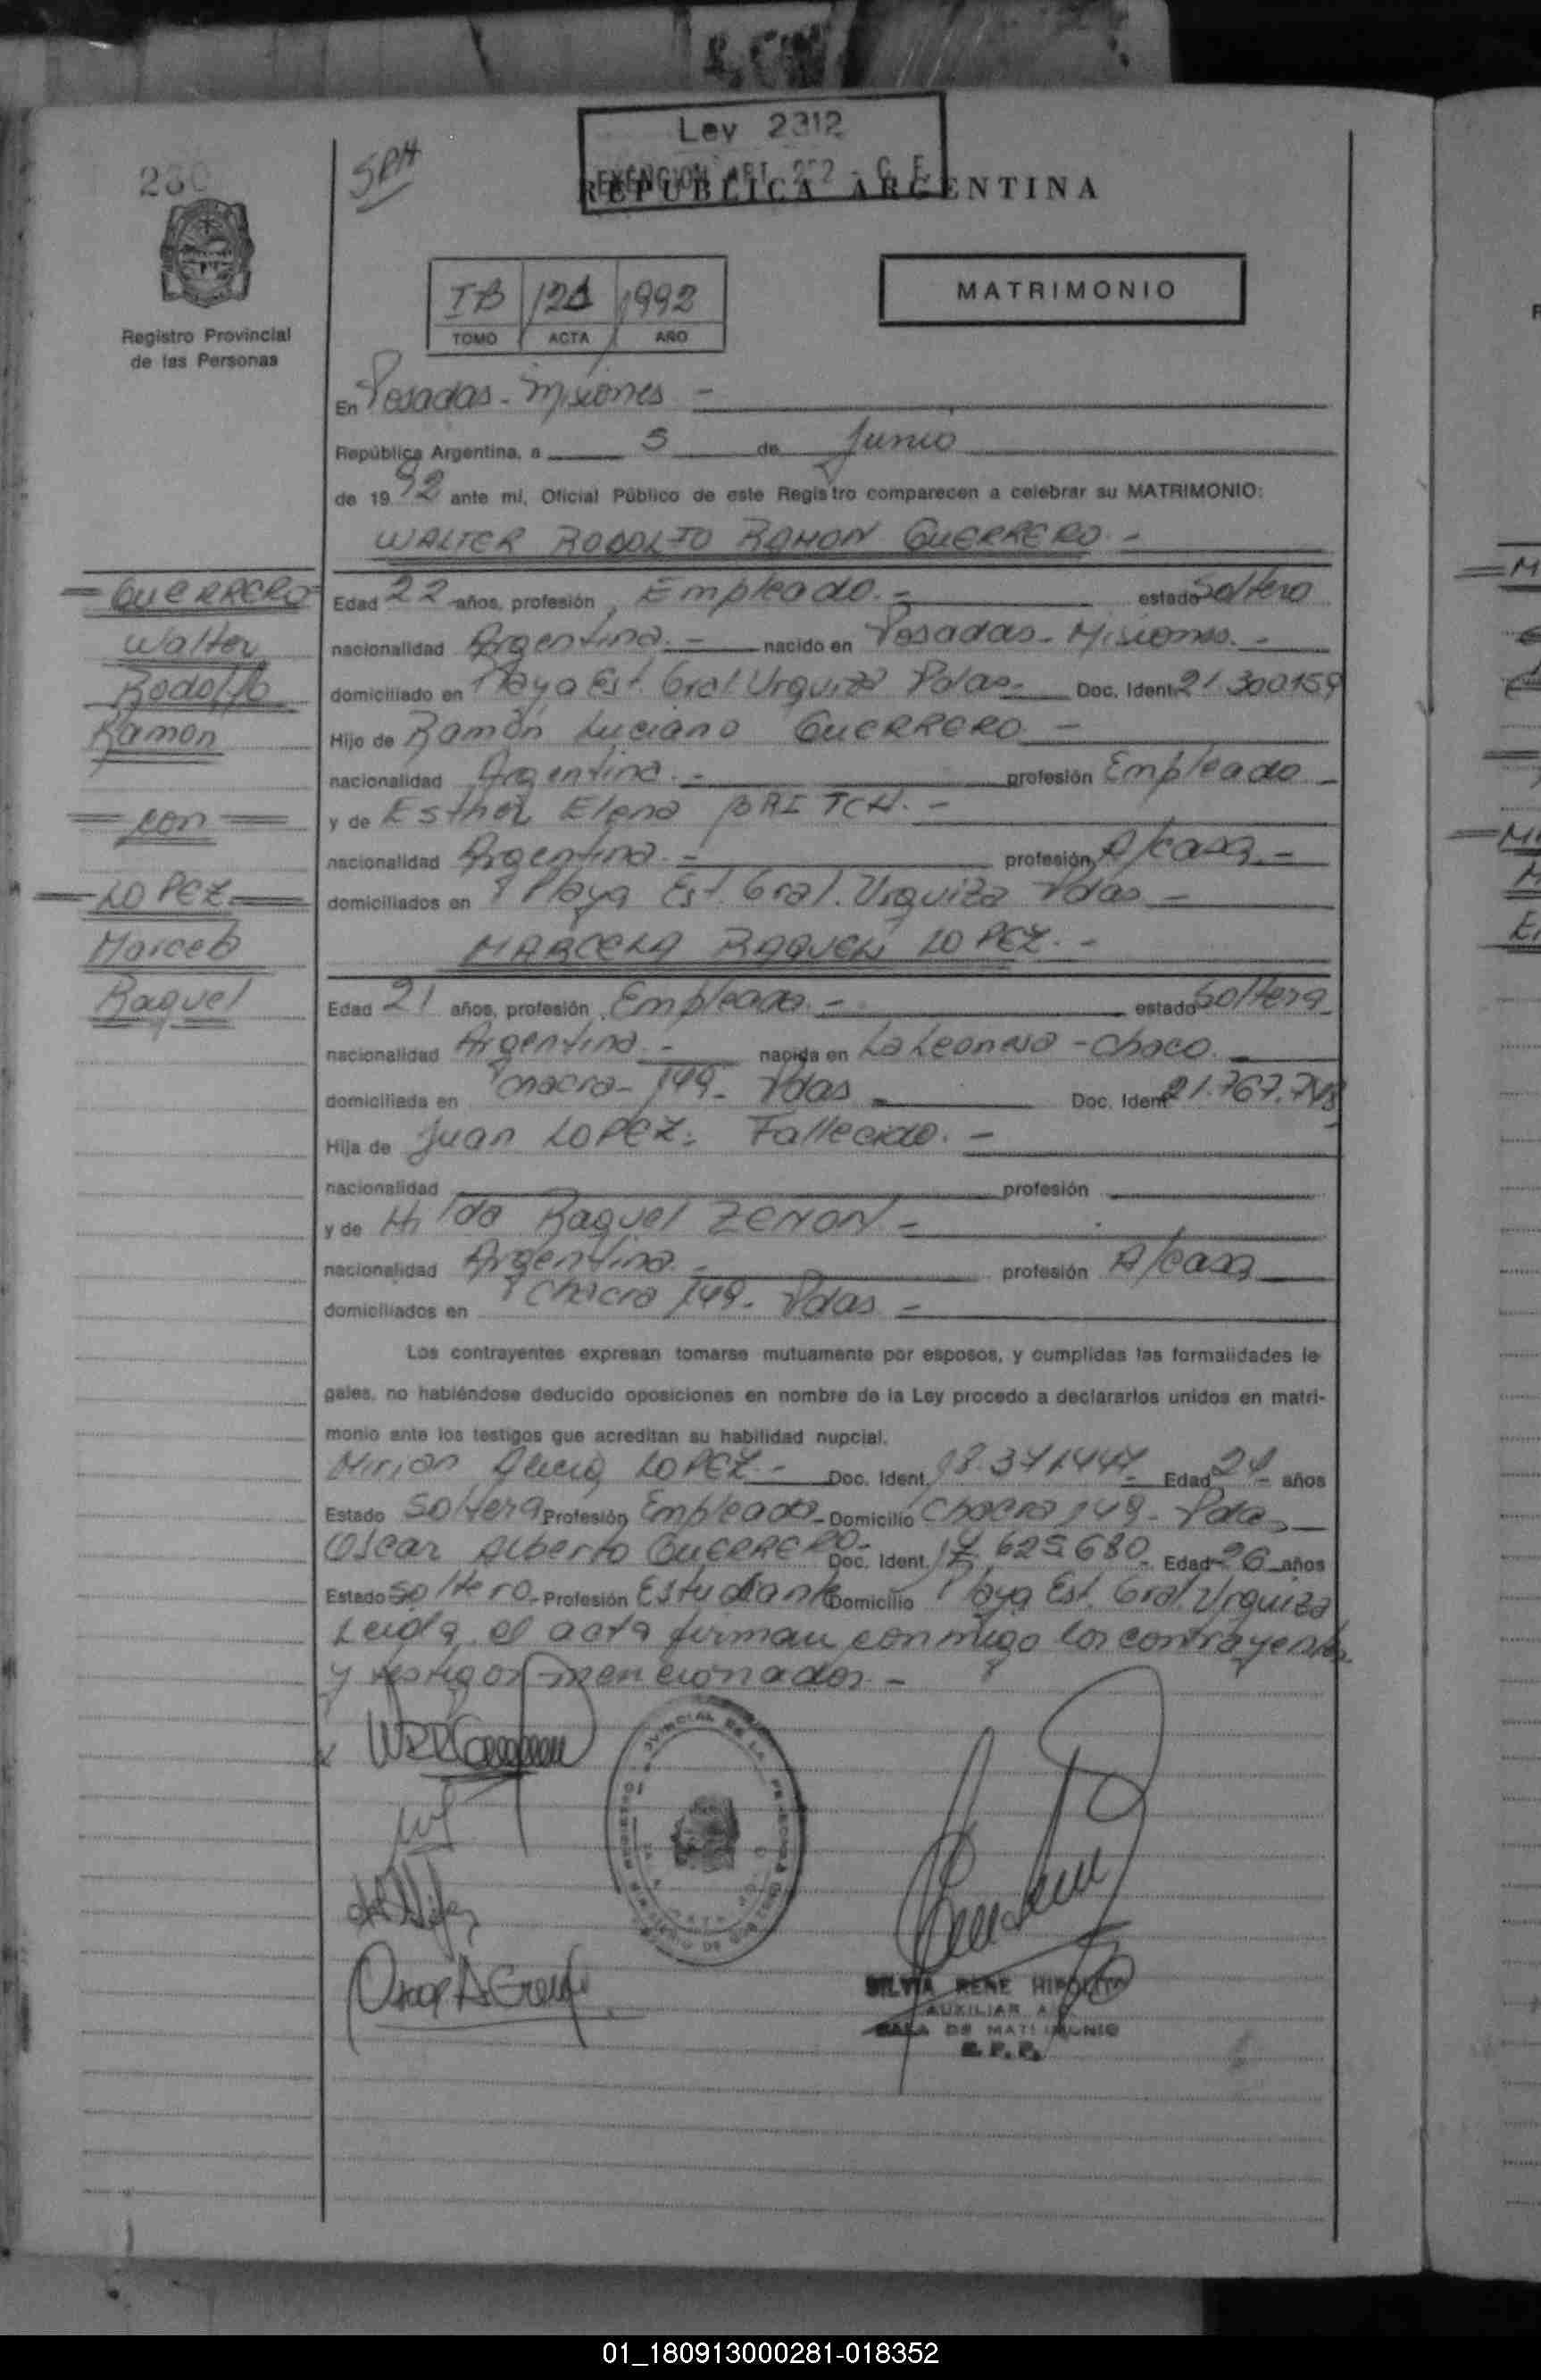 Ley 2312
EXENCION ART. 252 - C. F.
REPUBLICA ARGENTINA
230
SRH
Registro Provincial
de las Personas
IB 121 1992
TOMO ACTA AÑO
MATRIMONIO
En Posadas - Misiones -
República Argentina, a 5 de Junio
de 1992 ante mí, Oficial Público de este Registro comparecen a celebrar su MATRIMONIO:
WALTER RODOLFO RAMON GUERRERO. -
GUERRERO
Walter
Rodolfo
Ramon
con
LOPEZ
Marcela
Raquel
Edad 22 años, profesión Empleado. - estado Soltero
nacionalidad Argentina. - nacido en Posadas - Misiones. -
domiciliado en Playa Est. Gral Urquiza Pdas - Doc. Ident. 21.300159
Hijo de Ramón Luciano GUERRERO. -
nacionalidad Argentina. - profesión Empleado -
y de Esther Elena BRITCH. -
nacionalidad Argentina. - profesión A/casa. -
domiciliados en Playa Est. Gral. Urquiza Pdas -
MARCELA RAQUEL LOPEZ. -
Edad 21 años, profesión Empleada. - estado Soltera
nacionalidad Argentina. - nacida en La Leonesa - Chaco.
domiciliada en Chacra - 149 - Pdas Doc. Ident. 21.767.748
Hija de Juan LOPEZ. Fallecido. -
nacionalidad profesión
y de Hilda Raquel ZENON -
nacionalidad Argentina. - profesión A/casa
domiciliados en Chacra 149 - Pdas -
Los contrayentes expresan tomarse mutuamente por esposos, y cumplidas las formalidades le
gales, no habiéndose deducido oposiciones en nombre de la Ley procedo a declararlos unidos en matri-
monio ante los testigos que acreditan su habilidad nupcial.
Mirian Alicia LOPEZ - Doc. Ident. 18.371447 - Edad 24 años
Estado Soltera Profesión Empleada - Domicilio Chacra 149 - Pdas
Oscar Alberto GUERRERO - Doc. Ident. 17.625.680 - Edad 26 años
Estado soltero - Profesión Estudiante Domicilio Playa Est. Gral. Urquiza
Leida el acta firman conmigo los contrayentes
y testigos mencionados. -
SILVIA RENE HIPOLITO
AUXILIAR
SALA DE MATRIMONIO
R. P. P.
01_180913000281-018352